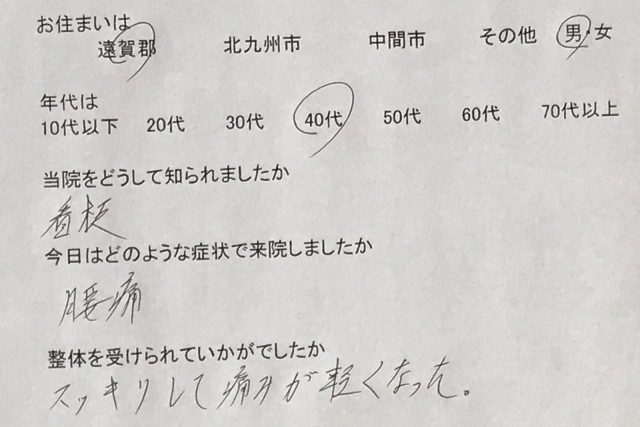 お住まいは
遠賀郡 北九州市 中間市 その他 男・女
年代は
10代以下 20代 30代 40代 50代 60代 70代以上
当院をどうして知られましたか
看板
今日はどのような症状で来院しましたか
腰痛
整体を受けられていかがでしたか
スッキリして痛みが軽くなった。